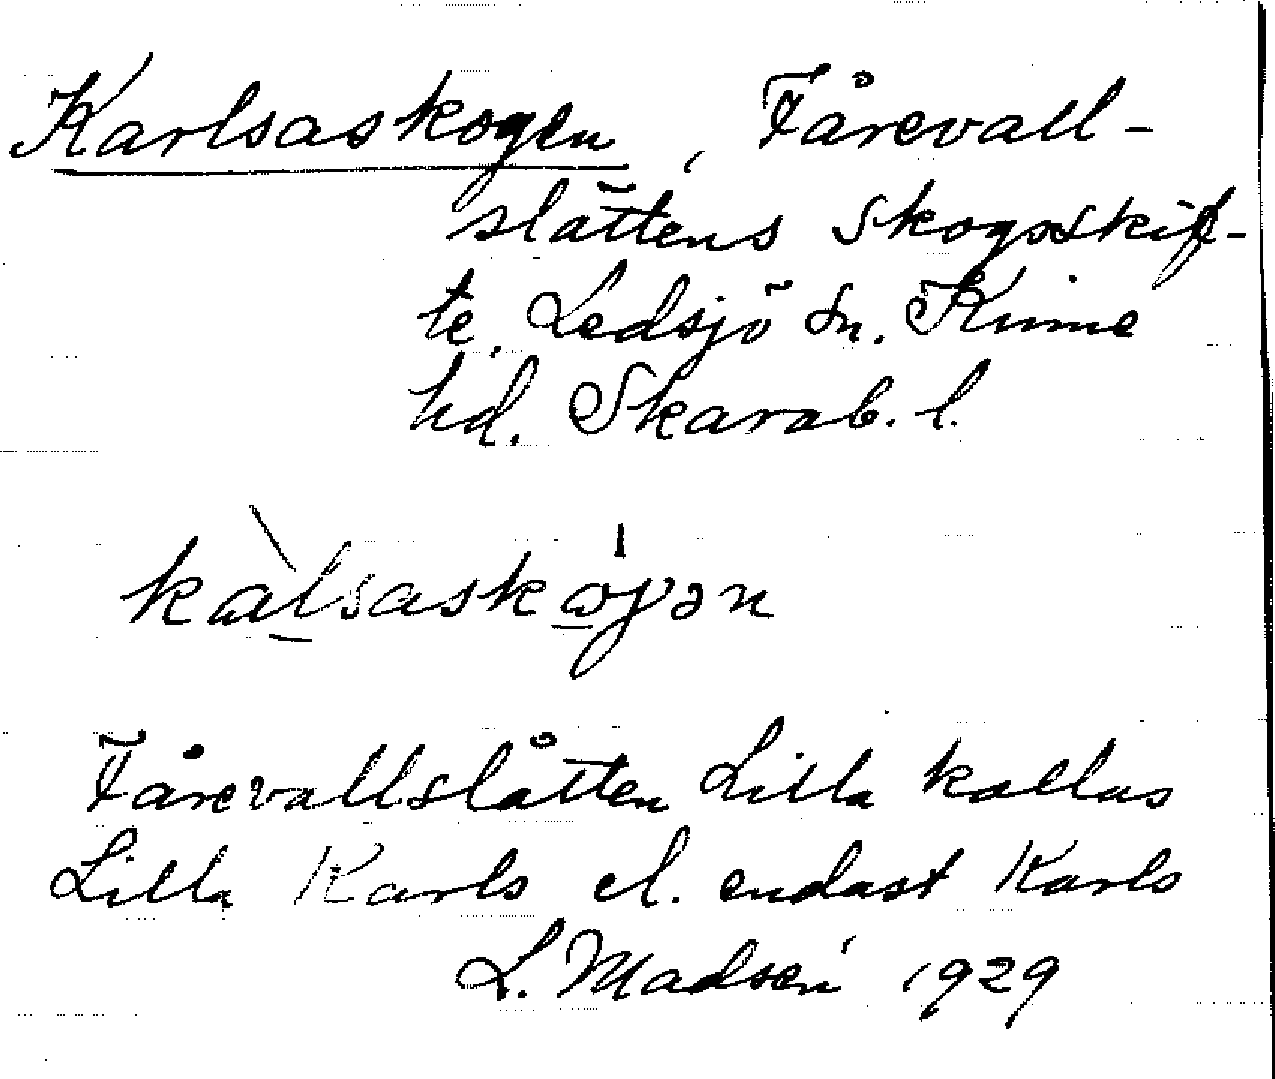 Karlsaskogen, Fårevall-
slåttens skogsskif-
te. Ledsjö sn. Kinne
hd. Skarab. l.
kàlsasḱɷγən
Fårevallslåtten Lilla kallas
Lilla Karls el. endast Karls
L. Madsén 1929